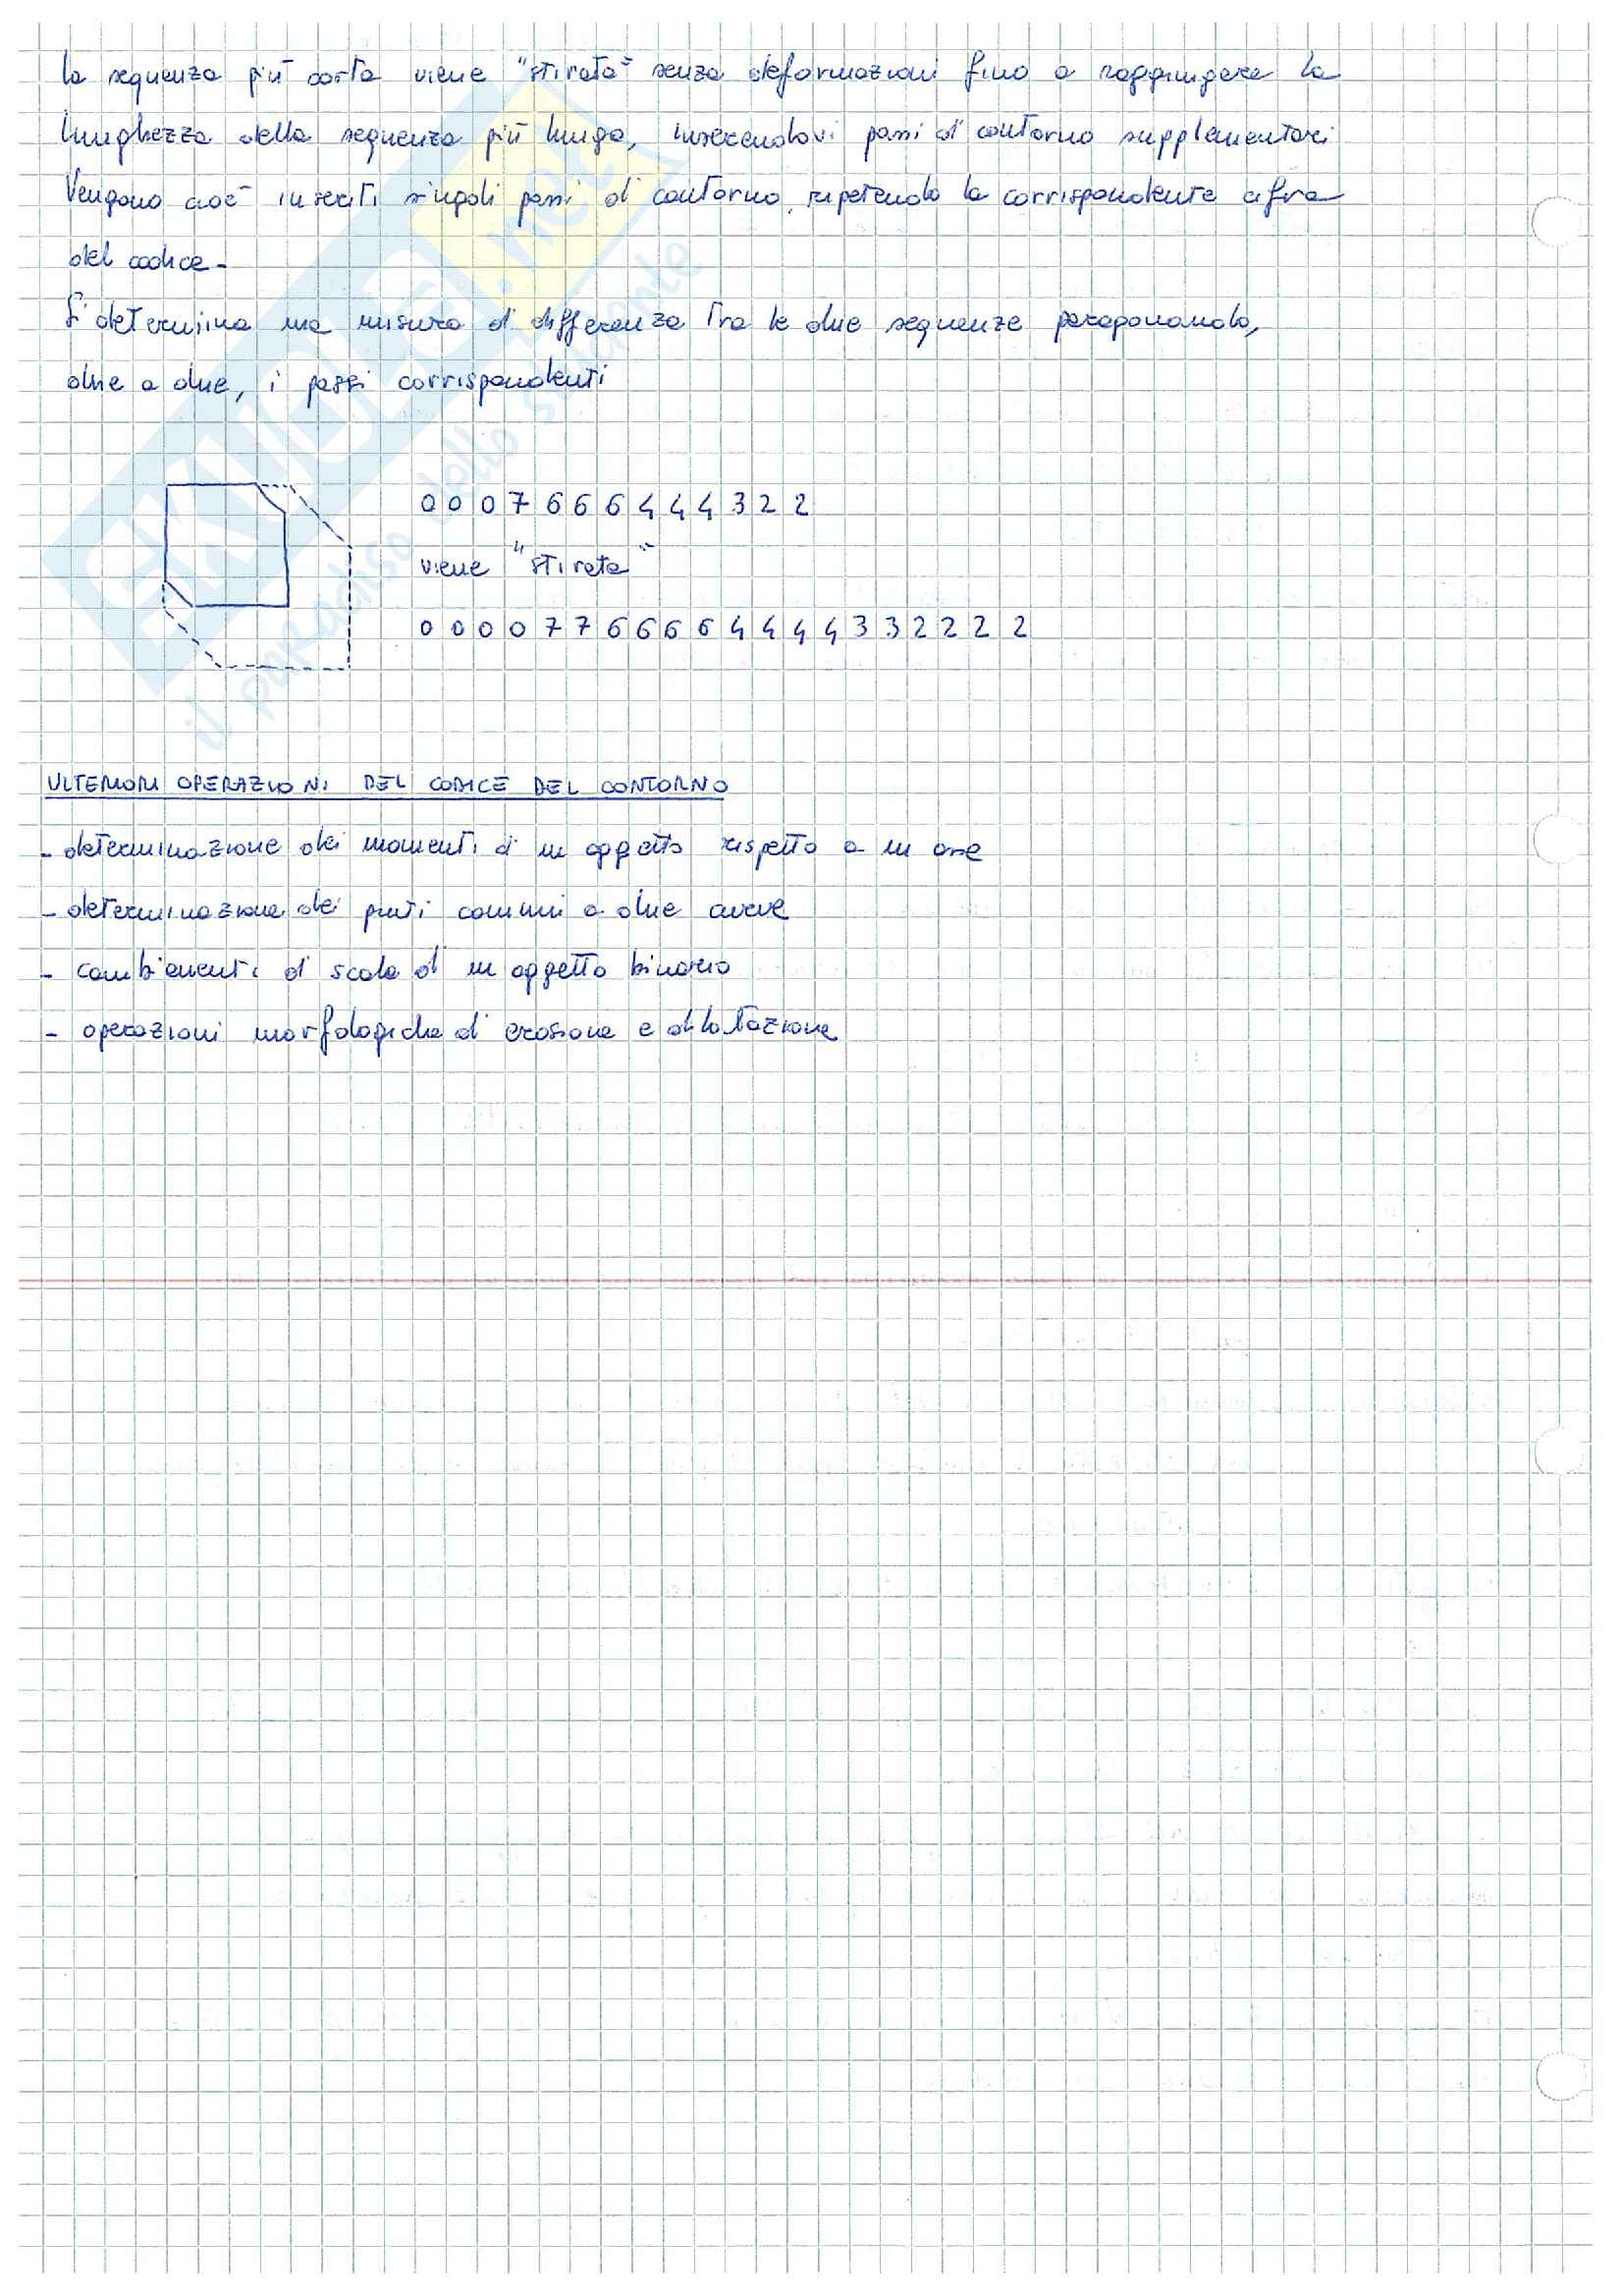 la sequenza più corta viene "stirata" senza deformazioni fino a raggiungere la
lunghezza della sequenza più lunga, inserendovi passi di contorno supplementari
Vengono cioè inseriti singoli passi di contorno, ripetendo la corrispondente cifra
del codice.
Si determina una misura di differenza tra le due sequenze paragonando,
due a due, i passi corrispondenti
0 0 0 7 6 6 6 4 4 4 3 2 2
viene "stirata"
0 0 0 0 7 7 6 6 6 6 4 4 4 4 3 3 2 2 2 2
ULTERIORI OPERAZIONI DEL CODICE DEL CONTORNO
- determinazione dei momenti di un oggetto rispetto a un asse
- determinazione dei punti comuni a due curve
- cambiamenti di scala di un oggetto binario
- operazioni morfologiche di erosione e dilatazione
SKUOLA.net
il paradiso dello studente